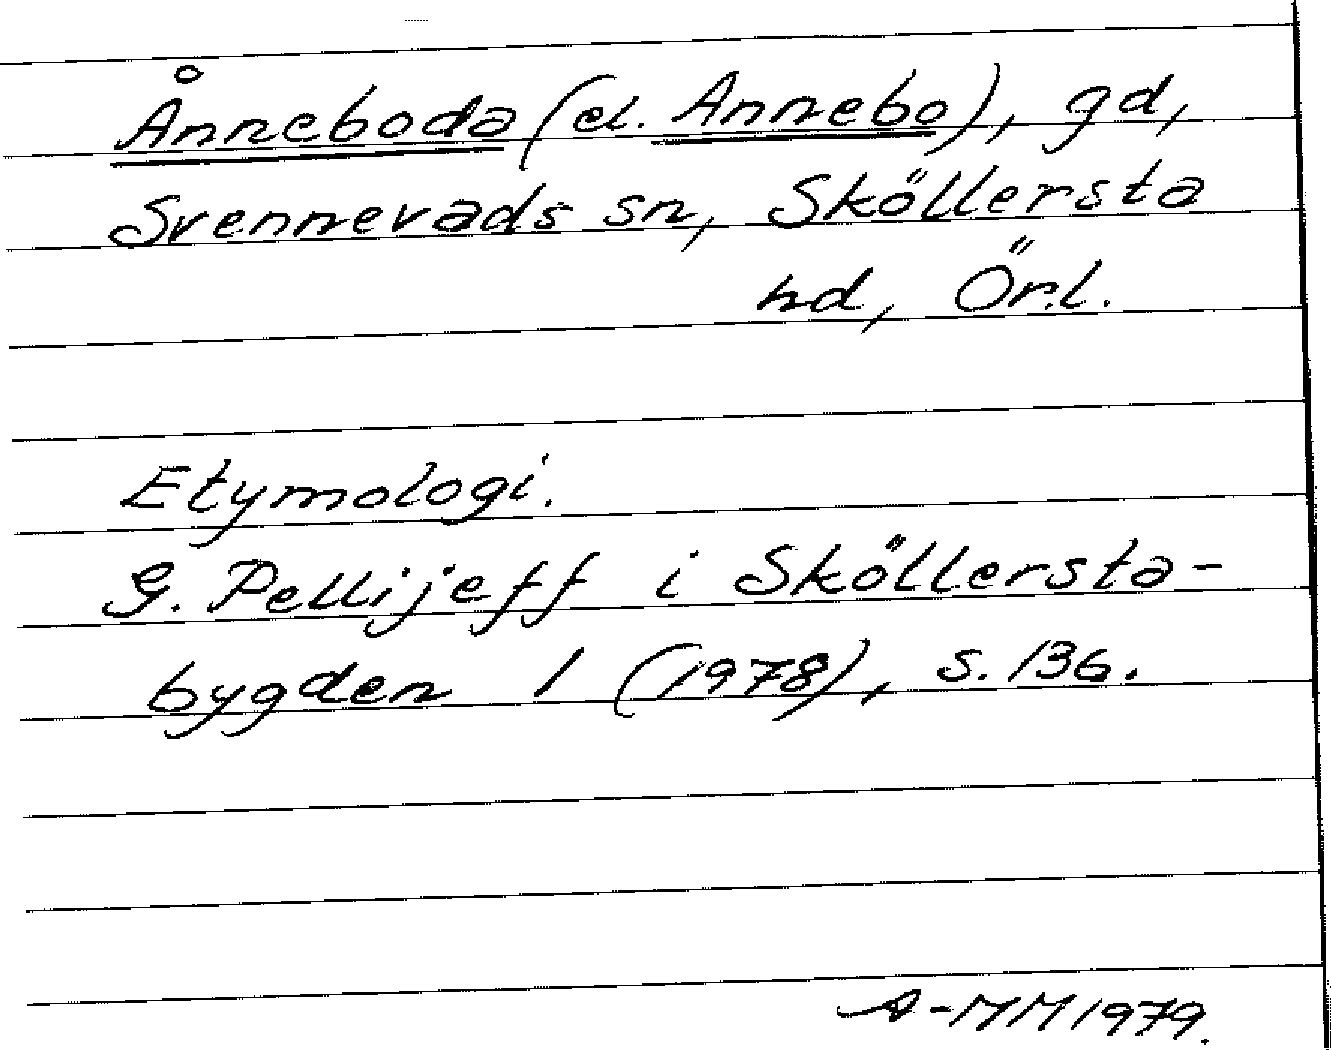 Ånneboda (el. Annebo), gd,
Svennevads sn, Sköllersta
hd, Ör.l.
Etymologi.
G. Pellijeff i Sköllersta-
bygden 1 (1978), s. 136.
A-MM 1979.